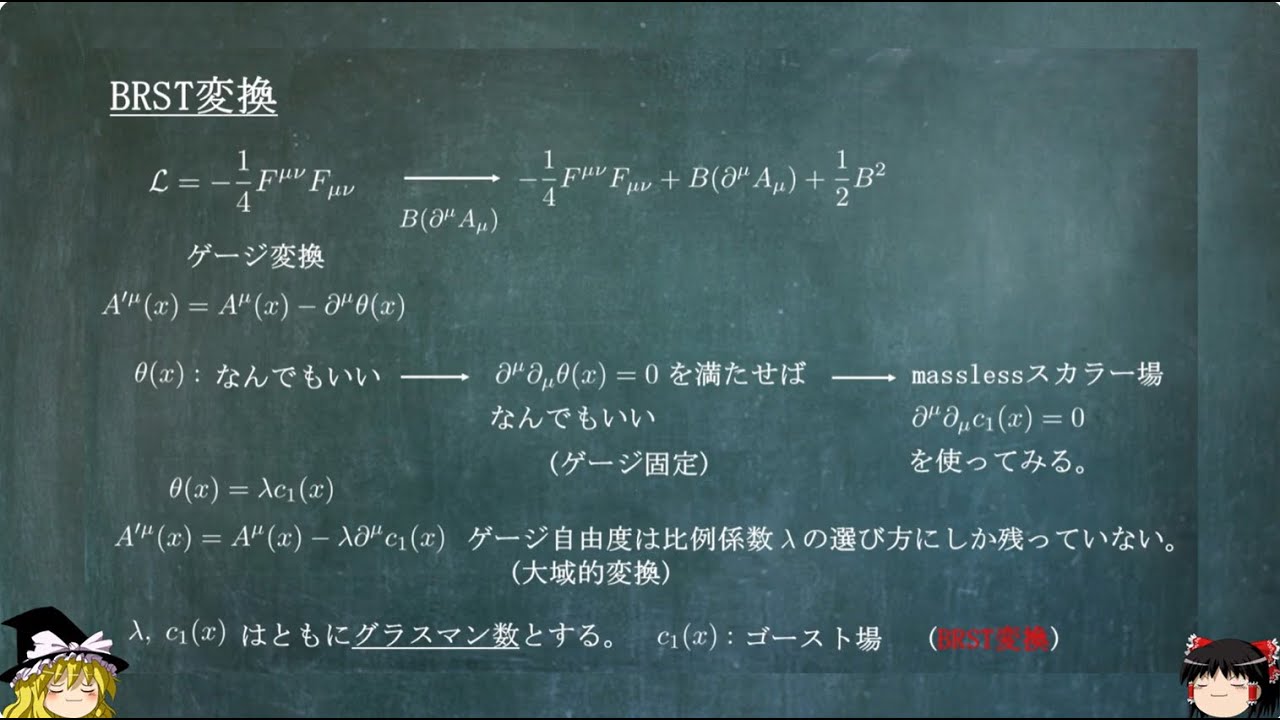 BRST変換
ℒ = −1/4 F^{μν}F_{μν} ⟶ −1/4 F^{μν}F_{μν} + B(∂^μA_μ) + 1/2 B²
B(∂^μA_μ)
ゲージ変換
A'^μ(x) = A^μ(x) − ∂^μθ(x)
θ(x) : なんでもいい ⟶ ∂^μ∂_μθ(x) = 0 を満たせば ⟶ masslessスカラー場
なんでもいい ∂^μ∂_μc₁(x) = 0
(ゲージ固定) を使ってみる。
θ(x) = λc₁(x)
A'^μ(x) = A^μ(x) − λ∂^μc₁(x) ゲージ自由度は比例係数 λ の選び方にしか残っていない。
(大域的変換)
λ, c₁(x) はともにグラスマン数とする。 c₁(x) : ゴースト場 (BRST変換)